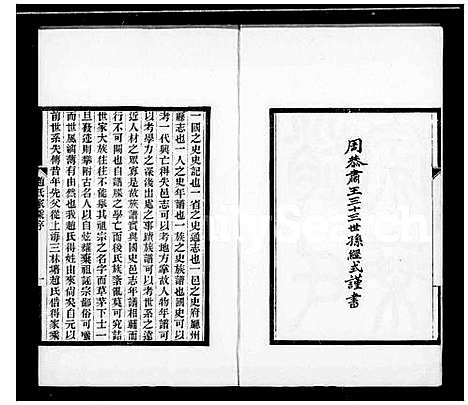 周恭肅王三十三世孫經式謹書
一國之史史記也一省之史通志也一邑之史府廳州
縣志也一人之史年譜也一族之史族譜也國史可以
考一代興亡得失邑志可以考地方掌故人物年譜可
以考學力之深後出處之事蹟族譜可以考世系之遠
近人材之眾寡是故族譜實與國史邑志年譜相輔而
行不可闕也自譜牒之學亡而後氏族紊亂莫可究詰
世家大族往往不能舉其祖宗之名字而草茅下士一
旦發迹則攀附古名人以自炫耀棄祖誣宗鄙俗可嗤
而世風澆薄有由然也我趙氏得姓由來尚矣自元以
前世系失傳昔年先父從上海三林塘趙氏借得家乘
趙氏家乘序
一